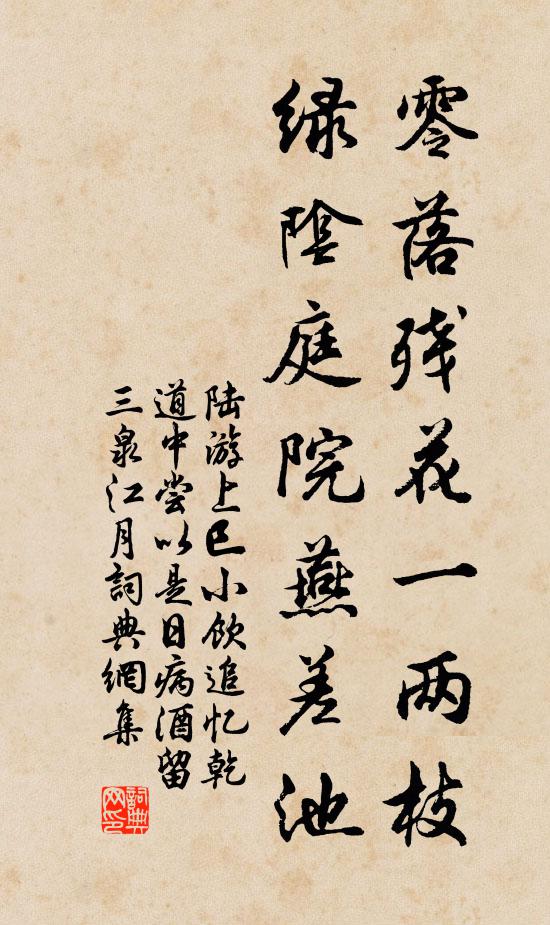 零落残花一两枝
绿阴庭院燕差池
陆游上巳小饮追忆乾
道中尝以是日病酒留
三泉江月詞典網集
詞典
网印